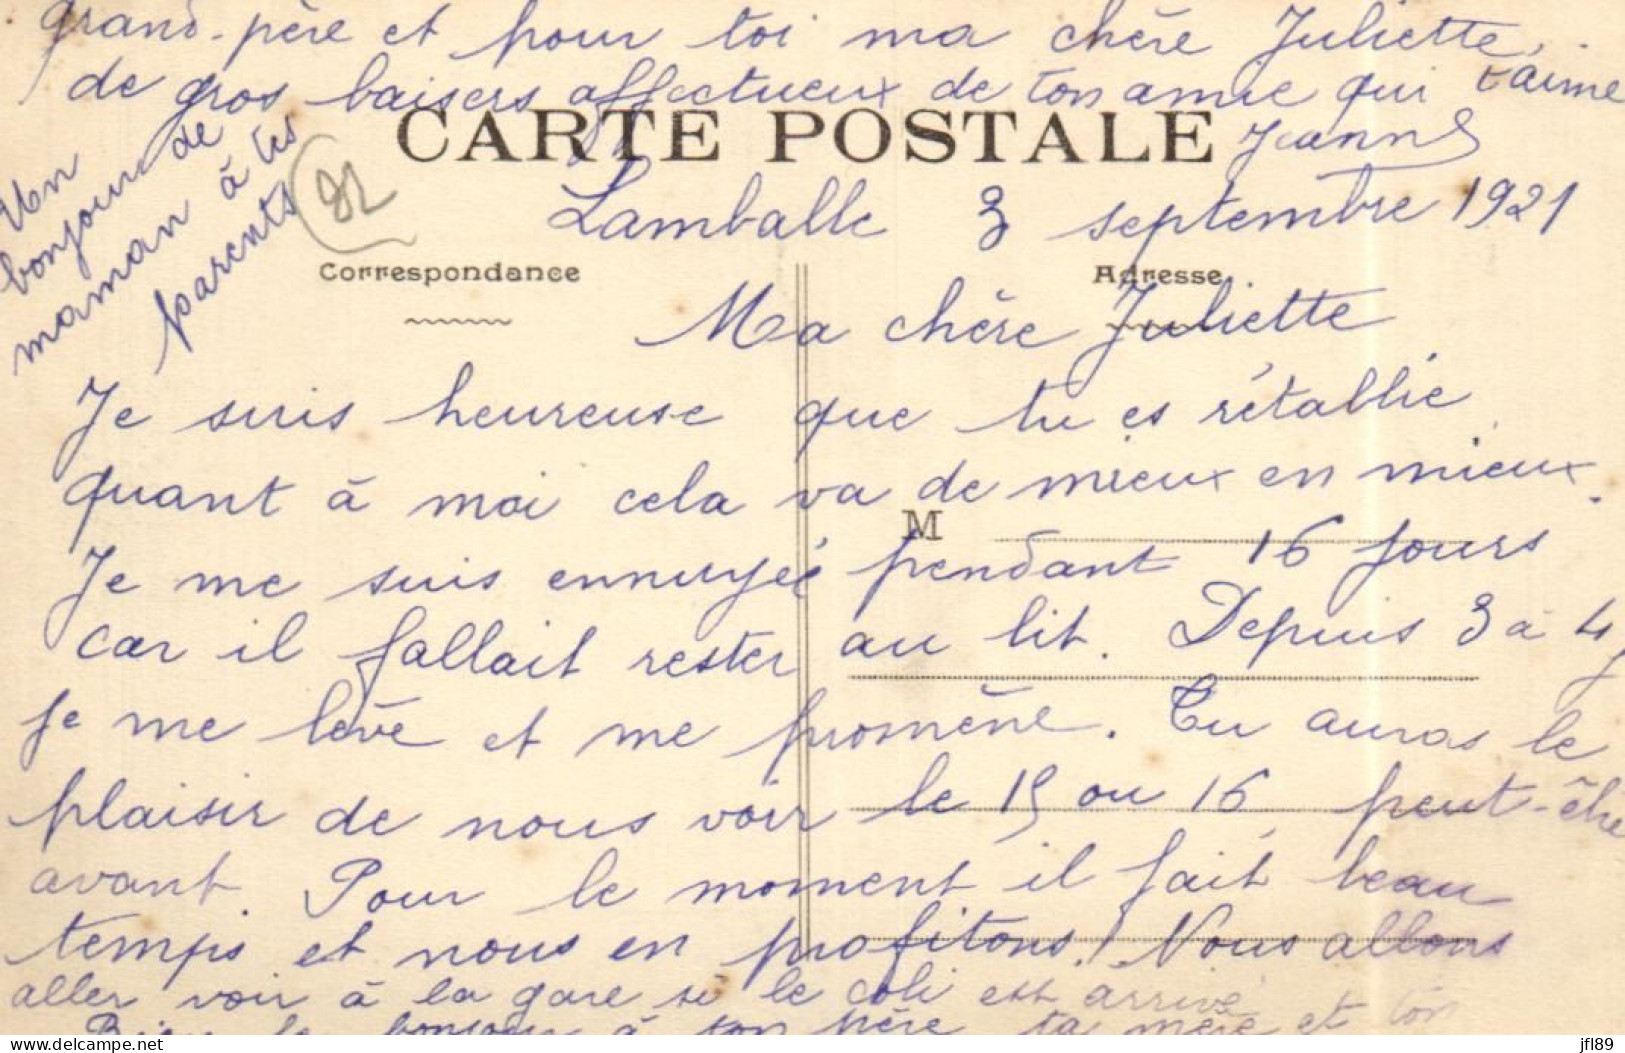 grand-père et pour toi ma chère Juliette,
de gros baisers affectueux de ton amie qui t'aime
Jeanne
Un
bonjour de
maman à tes
parents
82
CARTE POSTALE
Lamballe 3 septembre 1921
Correspondance
Adresse
Ma chère Juliette
Je suis heureuse que tu es rétablie
quant à moi cela va de mieux en mieux.
M
Je me suis ennuyée pendant 16 jours
car il fallait rester au lit. Depuis 3 à 4 j
je me lève et me promène. Tu auras le
plaisir de nous voir le 15 ou 16 peut-être
avant. Pour le moment il fait beau
temps et nous en profitons! Nous allons
aller voir à la gare si le coli est arrivé
Bien le bonjour à ton père ta mère et ton
jfl89
delcampe.net